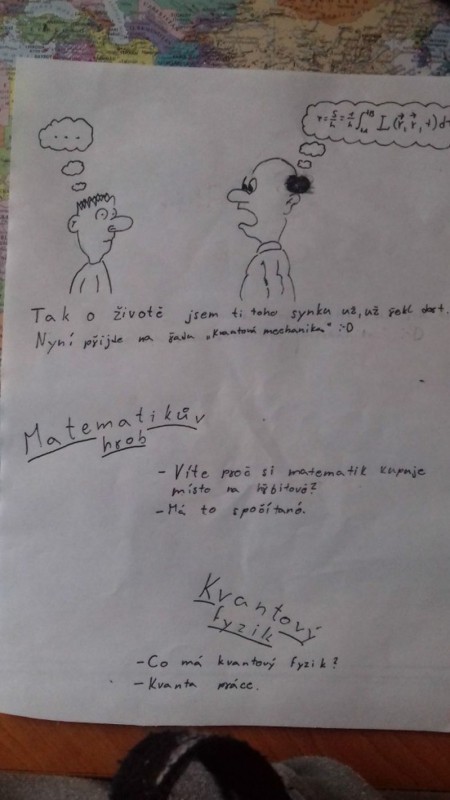 ...
r = S/ħ = 1/ħ ∫ L (r⃗, r⃗, t) d
Tak o životě jsem ti toho synku už, už řekl dost.
Nyní přijde na řadu „Kvantová mechanika" :-D
Matematikův
hrob
- Víte proč si matematik kupuje
místo na hřbitově?
- Má to spočítané.
Kvantový
fyzik
- Co má kvantový fyzik?
- Kvanta práce.